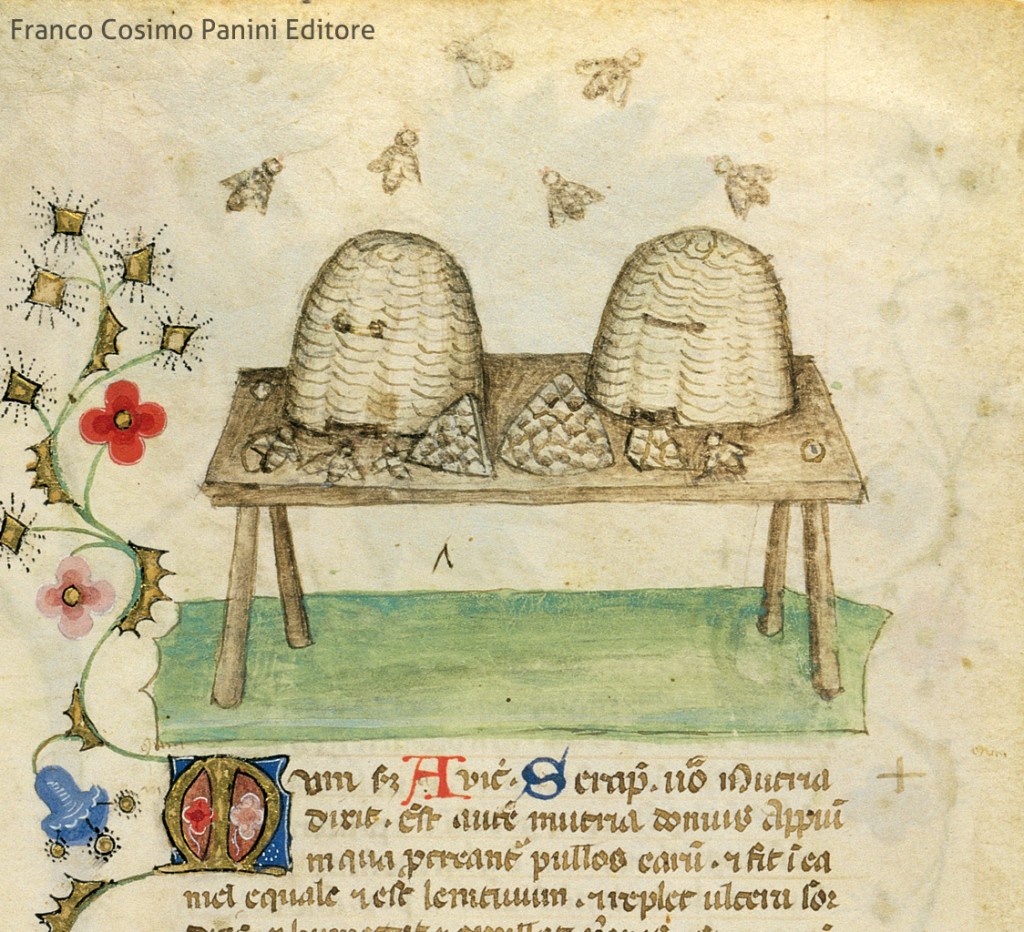 Franco Cosimo Panini Editore
Mum sz Avic. Serap. uo Mutria
dixit. est autē mutria domus Appiū
in qua procreant pullos earū. ⁊ fit ī ea
mel equale ⁊ est lenitiuum. ⁊ replet ulcera sor